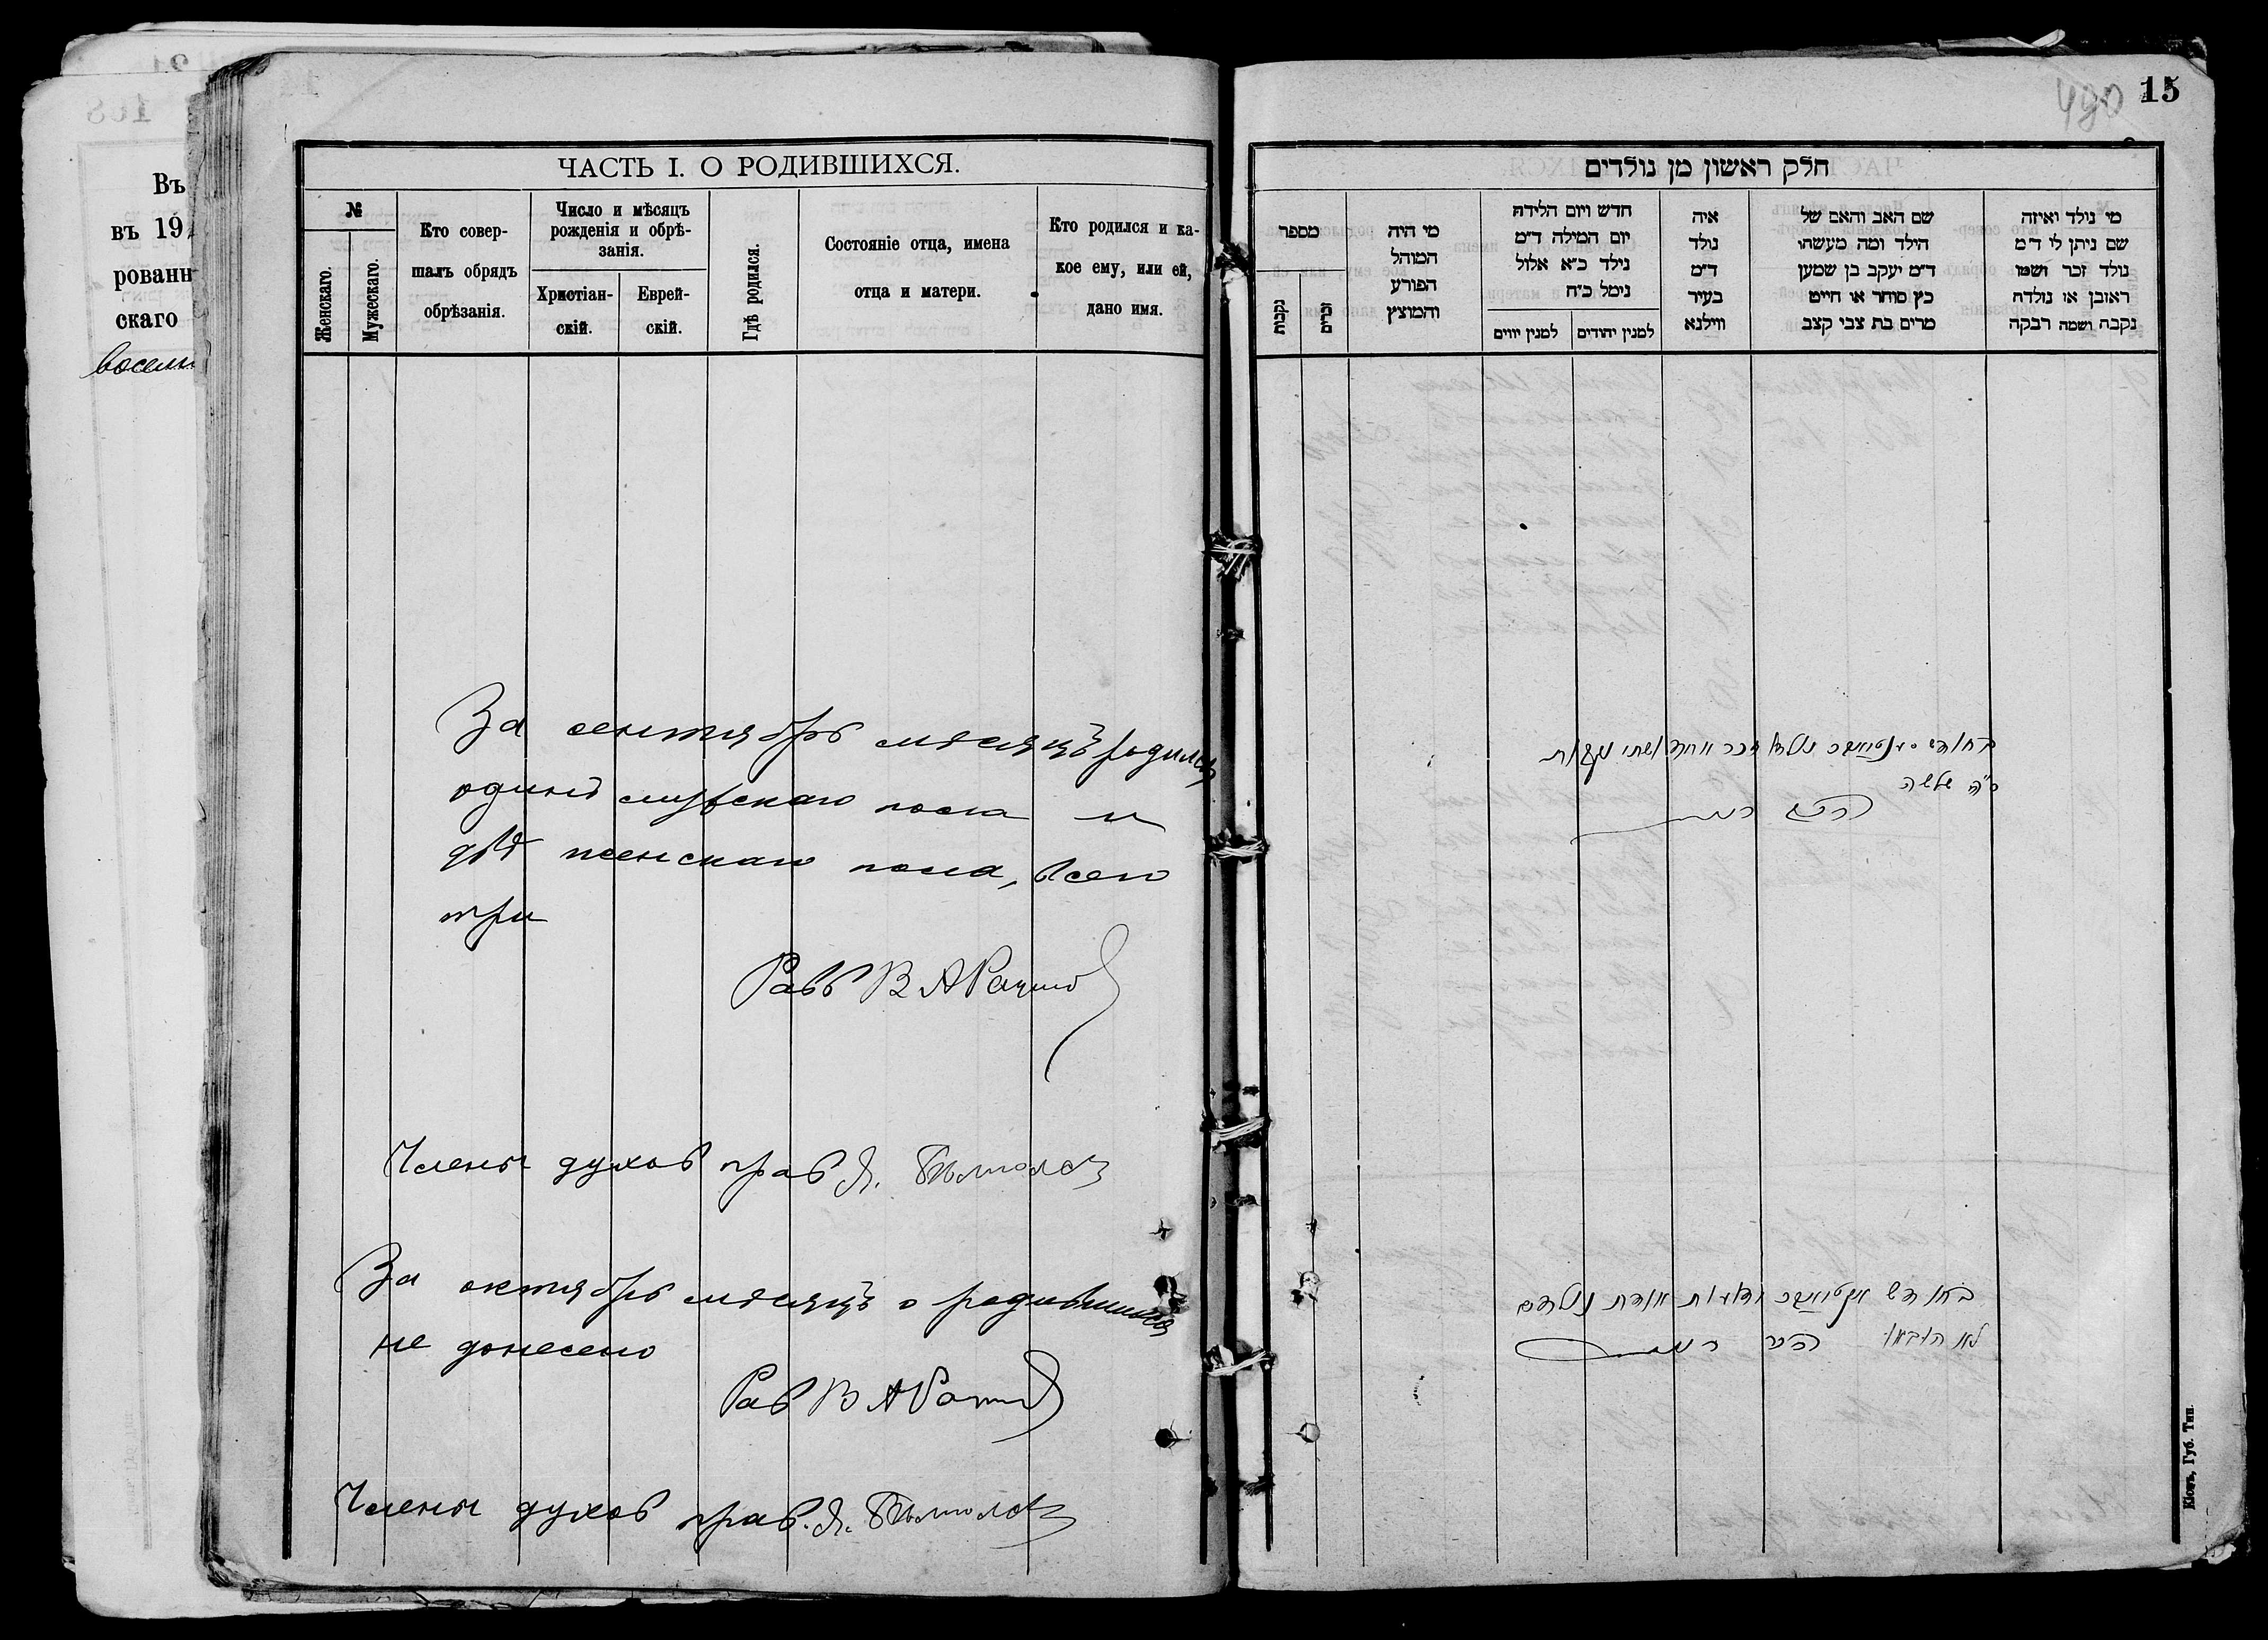 Въ
въ 19
рованн
скаго
ЧАСТЬ I. О РОДИВШИХСЯ.
№
Женскаго.
Мужескаго.
Кто совер-
шалъ обрядъ
обрѣзанія.
Число и мѣсяцъ
рожденія и обрѣ-
занія.
Христіан-
скій.
Еврей-
скій.
Гдѣ родился.
Состояніе отца, имена
отца и матери.
Кто родился и ка-
кое ему, или ей,
дано имя.
За сентябрь мѣсяцъ родился
одинъ мужскаго пола и
двѣ женскаго пола, всего
три
Равв В А
Члены духов прав Я.
За октябрь мѣсяцъ о родившихся
не донесено
Рав В А
Члены духов прав. Я.
490 15
חלק ראשון מן נולדים
מי נולד ואיזה
שם ניתן לו ד״מ
נולד זכר ושמו
ראובן או נולדה
נקבה ושמה רבקה
שם האב והאם של
הילד ומה מעשהו
ד״מ יעקב בן שמעון
כץ סוחר או חייט
מרים בת צבי קצב
איה
נולד
ד״מ
בעיר
ווילנא
חדש ויום הלידה
יום המילה ד״מ
נילד כ״א אלול
נימל כ״ח
למנין יהודים
למנין יווים
מי היה
המוהל
הפורע
והמוצץ
מספר
זכרים
נקבות
בחודש סעפטיאבר נולד זכר אחד ושתי נקבות
ס״ה שלשה
בחודש אקטיאבר אודות נולדים
לא הובאו
Кіевъ, Губ. Тип.